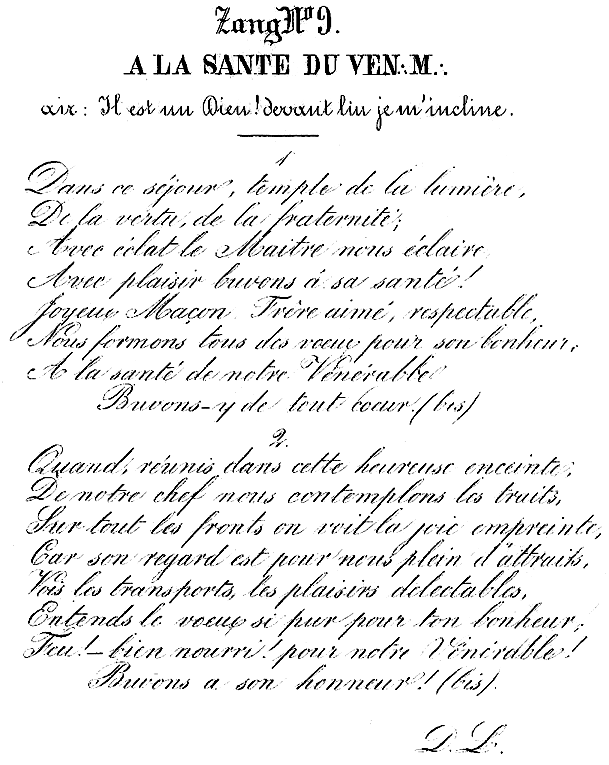 Zang No 9.
A LA SANTE DU VEN∴M∴
air: Il est un Dieu! devant lui je m'incline.
1
Dans ce séjour, temple de la lumière,
De la vertu, de la fraternité;
Avec éclat le Maitre nous éclaire,
Avec plaisir buvons à sa santé!
Joyeux Maçon, Frère aimé, respectable,
Nous formons tous des vœux pour son bonheur,
A la santé de notre Vénérabbe
Buvons-y de tout coeur! (bis)
2.
Quand, réunis dans cette heureuse enceinte,
De notre chef nous contemplons les traits,
Sur tout les fronts on voit la joie empreinte,
Car son regard est pour nous plein d'attraits,
Vois les transports, les plaisirs delectables,
Entends le voeux si pur pour ton bonheur,
Feu!- bien nourri! pour notre Vénérable!
Buvons a son honneur! (bis).
D. L.